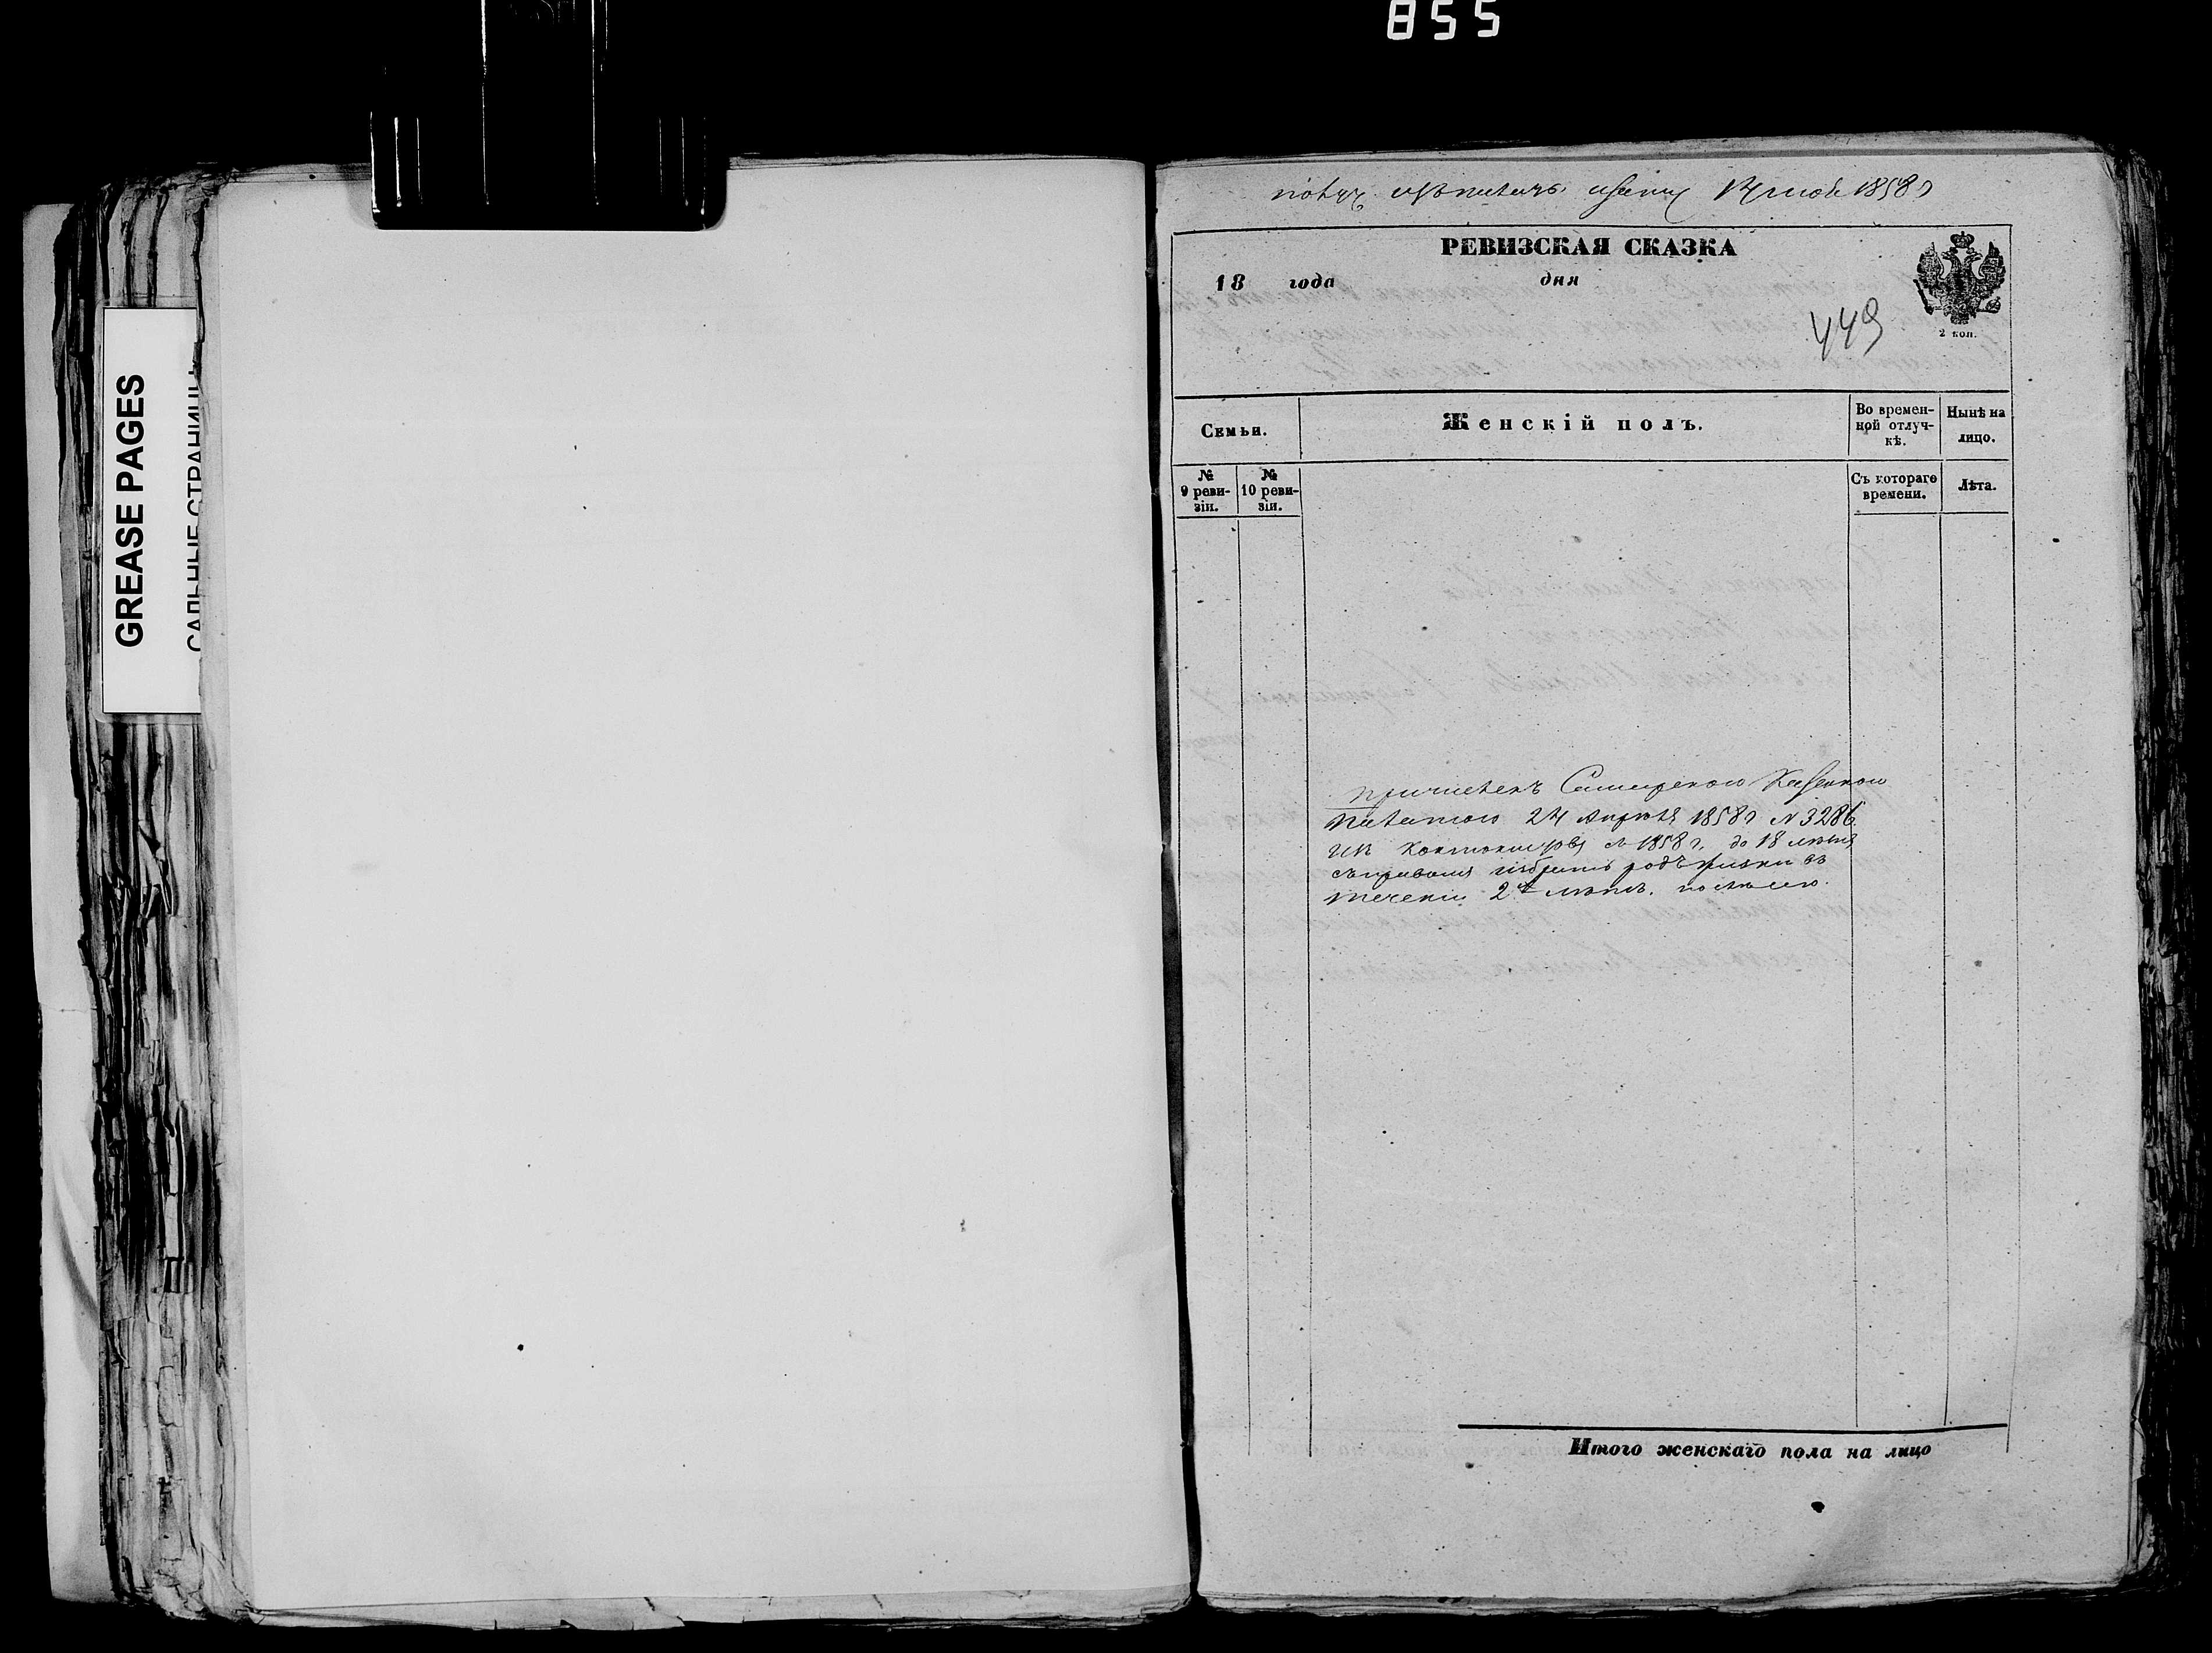 855
GREASE PAGES
САЛЬНЫЕ СТРАНИЦЫ
1858
РЕВИЗСКАЯ СКАЗКА
18 года дня
2 коп.
449
Семьи.
Женскій полъ.
Во времен-
ной отлуч-
кѣ.
Нынѣ на
лицо.
№
9 реви-
зіи.
№
10 реви-
зіи.
Съ котораго
времени.
Лѣта.
Причисленъ Самарскою Казенною
Палатою 24 Апрѣля 1858 г N 3286
съ 1858 г. до 18 лѣтъ
избрать родъ жизни въ
теченіи 2х лѣтъ.
Итого женскаго пола на лицо